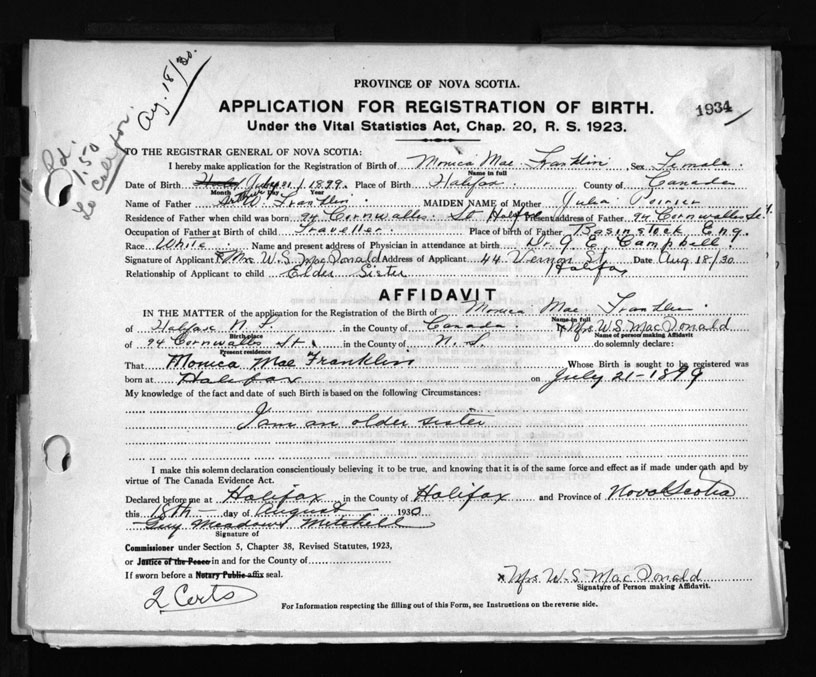 Pd.
1.50
Aug. 18/30.
PROVINCE OF NOVA SCOTIA.
1934
APPLICATION FOR REGISTRATION OF BIRTH.
Under the Vital Statistics Act, Chap. 20, R. S. 1923.
TO THE REGISTRAR GENERAL OF NOVA SCOTIA:
I hereby make application for the Registration of Birth of Monica Mae Franklin, Sex Female.
Name in full
Date of Birth July 21 / 1899. Place of Birth Halifax County of Canada
Month Day Year
Name of Father Franklin MAIDEN NAME of Mother Julia Poirier
Residence of Father when child was born 94 Cornwallis St Halifax Present address of Father 94 Cornwallis St.
Occupation of Father at Birth of child Traveller. Place of birth of Father Basinstock Eng.
Race White Name and present address of Physician in attendance at birth Dr. G. E. Campbell
Signature of Applicant x Mrs W. S. MacDonald Address of Applicant 44 Vernon St. Halifax Date Aug 18/30
Relationship of Applicant to child Elder Sister
AFFIDAVIT
IN THE MATTER of the application for the Registration of the Birth of Monica Mae Franklin
Name in full
of Halifax N. S. in the County of Canada. I, Mrs W. S. MacDonald
Birth place Name of person making Affidavit
of 94 Cornwallis St. in the County of N. S. do solemnly declare:
Present residence
That Monica Mae Franklin Whose Birth is sought to be registered was
born at Halifax on July 21-1899
My knowledge of the fact and date of such Birth is based on the following Circumstances:
I am an older sister
I make this solemn declaration conscientiously believing it to be true, and knowing that it is of the same force and effect as if made under oath and by
virtue of The Canada Evidence Act.
Declared before me at Halifax in the County of Halifax and Province of Nova Scotia
this 18th day of August 1930
Guy Meadows Mitchell
Signature of
Commissioner under Section 5, Chapter 38, Revised Statutes, 1923,
or Justice of the Peace in and for the County of
If sworn before a Notary Public affix seal.
x Mrs W. S. MacDonald
Signature of Person making Affidavit.
2 Certs
For Information respecting the filling out of this Form, see Instructions on the reverse side.